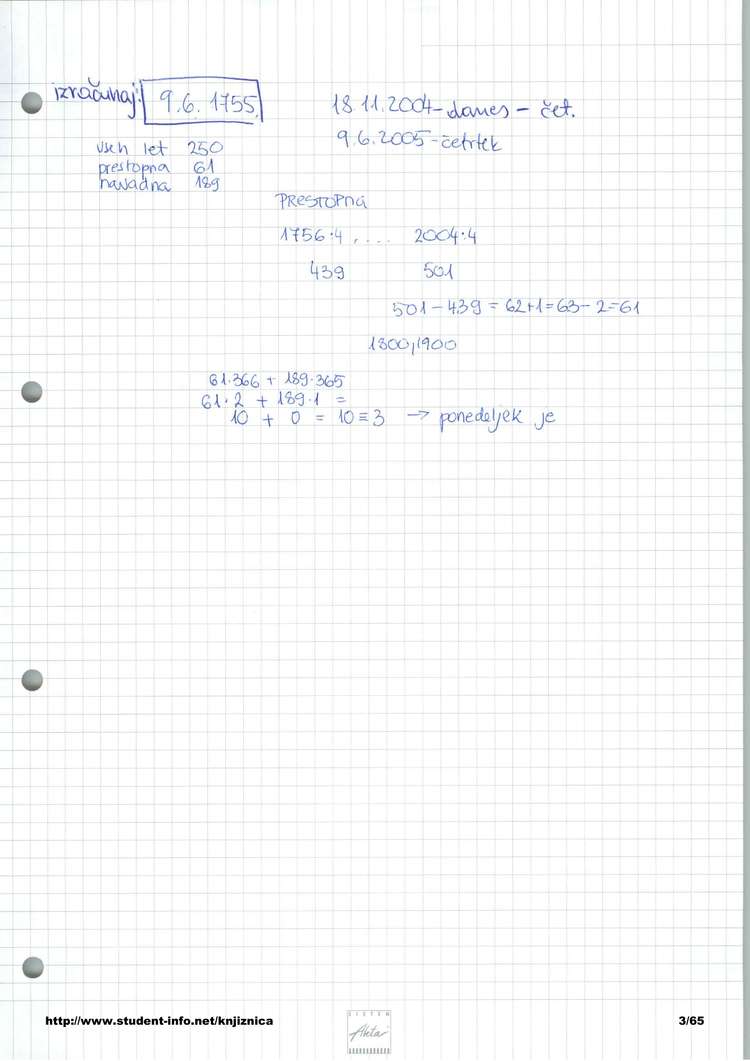 izračunaj: 9.6. 1755
18.11.2004 - danes - čet.
9.6.2005 - četrtek
vseh let 250
prestopna 61
navadna 189
PRESTOPNA
1756:4, ... 2004:4
439 501
501 - 439 = 62+1 = 63 - 2 = 61
1800, 1900
61·366 + 189·365
61·2 + 189·1 =
10 + 0 = 10 ≡ 3 → ponedeljek je
http://www.student-info.net/knjiznica
SISTEM
Aktai
3/65